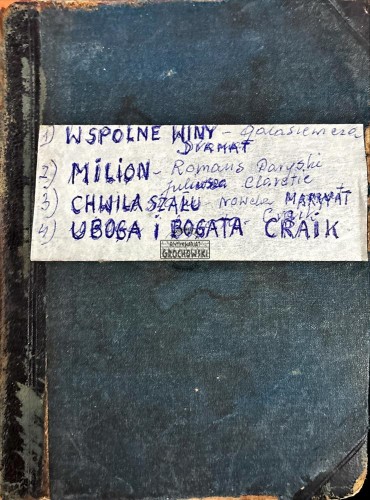 1) WSPOLNE WINY - Galasiewicza
DRAMAT
2) MILION - Romans Paryski
Juliusza Claretie
3) CHWILA SZAŁU - nowela MARRYAT
Craik
4) UBOGA i BOGATA - CRAIK
ANTYKWARIAT
GROCHOWSKI